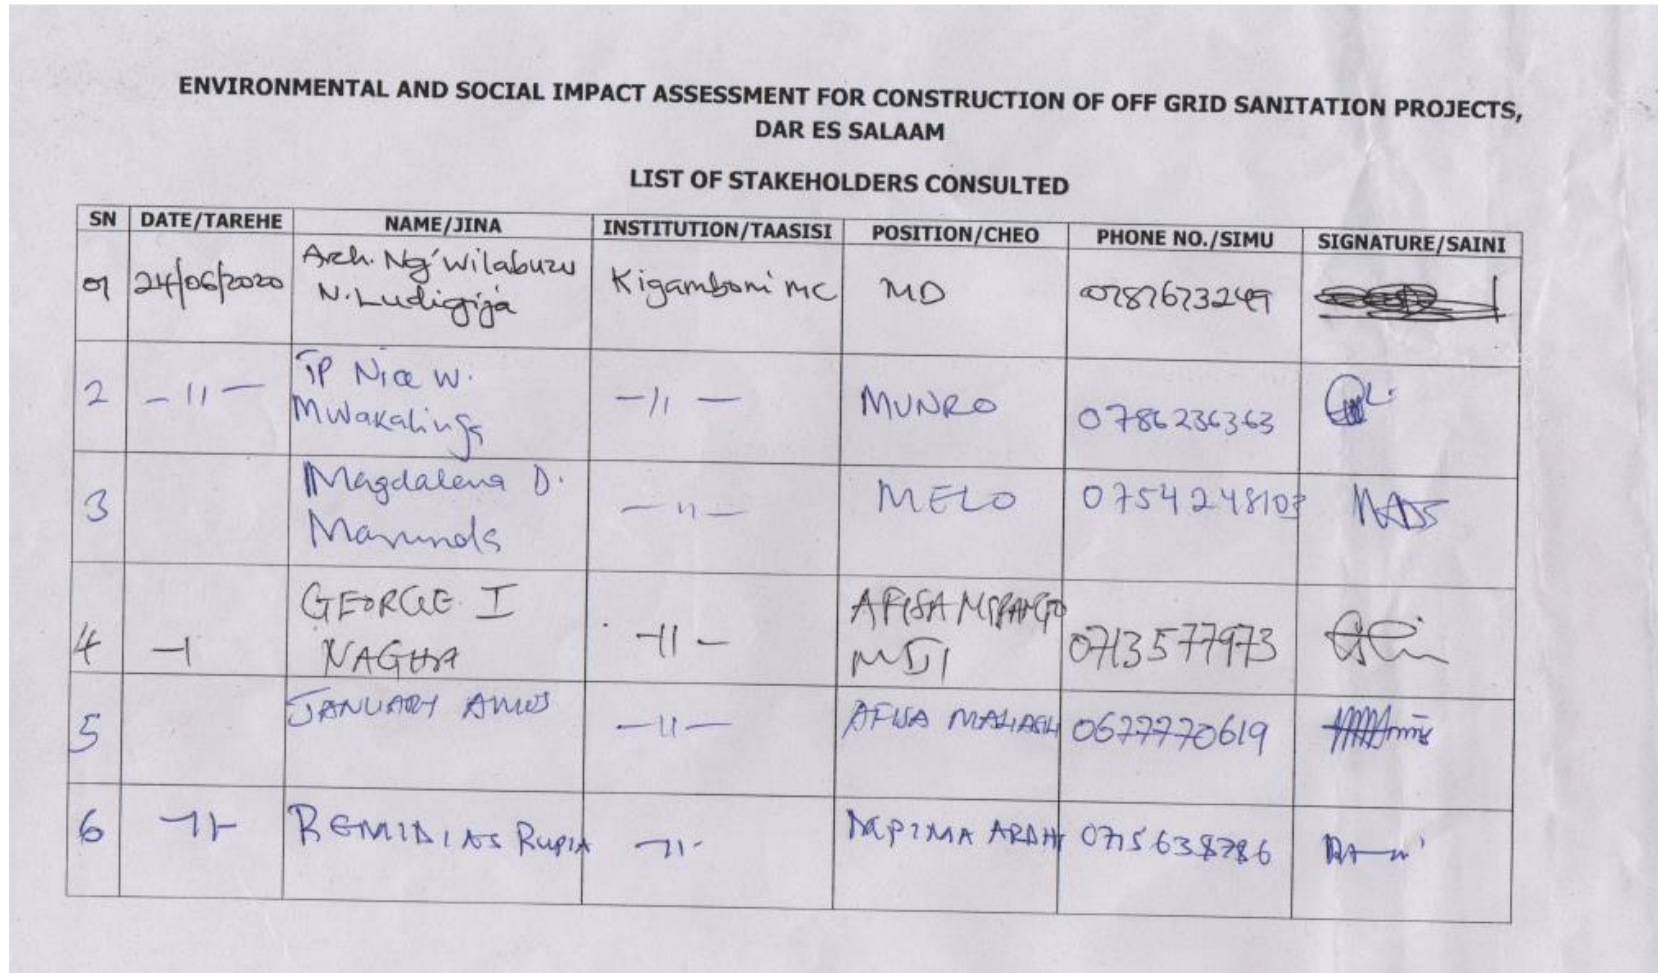 ENVIRONMENTAL AND SOCIAL IMPACT ASSESSMENT FOR CONSTRUCTION OF OFF GRID SANITATION PROJECTS,
DAR ES SALAAM
LIST OF STAKEHOLDERS CONSULTED
SN DATE/TAREHE NAME/JINA INSTITUTION/TAASISI POSITION/CHEO PHONE NO./SIMU SIGNATURE/SAINI
01 24/06/2020 Arch. Ng'wilabuzu N. Ludigija Kigamboni MC MD 0787673249
2 -11- TP Nice W. Mwakalinga -11- MUNRO 0786236363
3 Magdalena D. -11- MELO 0754248103
4 GEORGE I -11- AFISA MIPANGO MIJI 0713577973
5 JANUARY AMOS -11- AFISA 0677770619
6 -11- REMIDIAS RUPIA -11- MPIMA ARDHI 0715638786